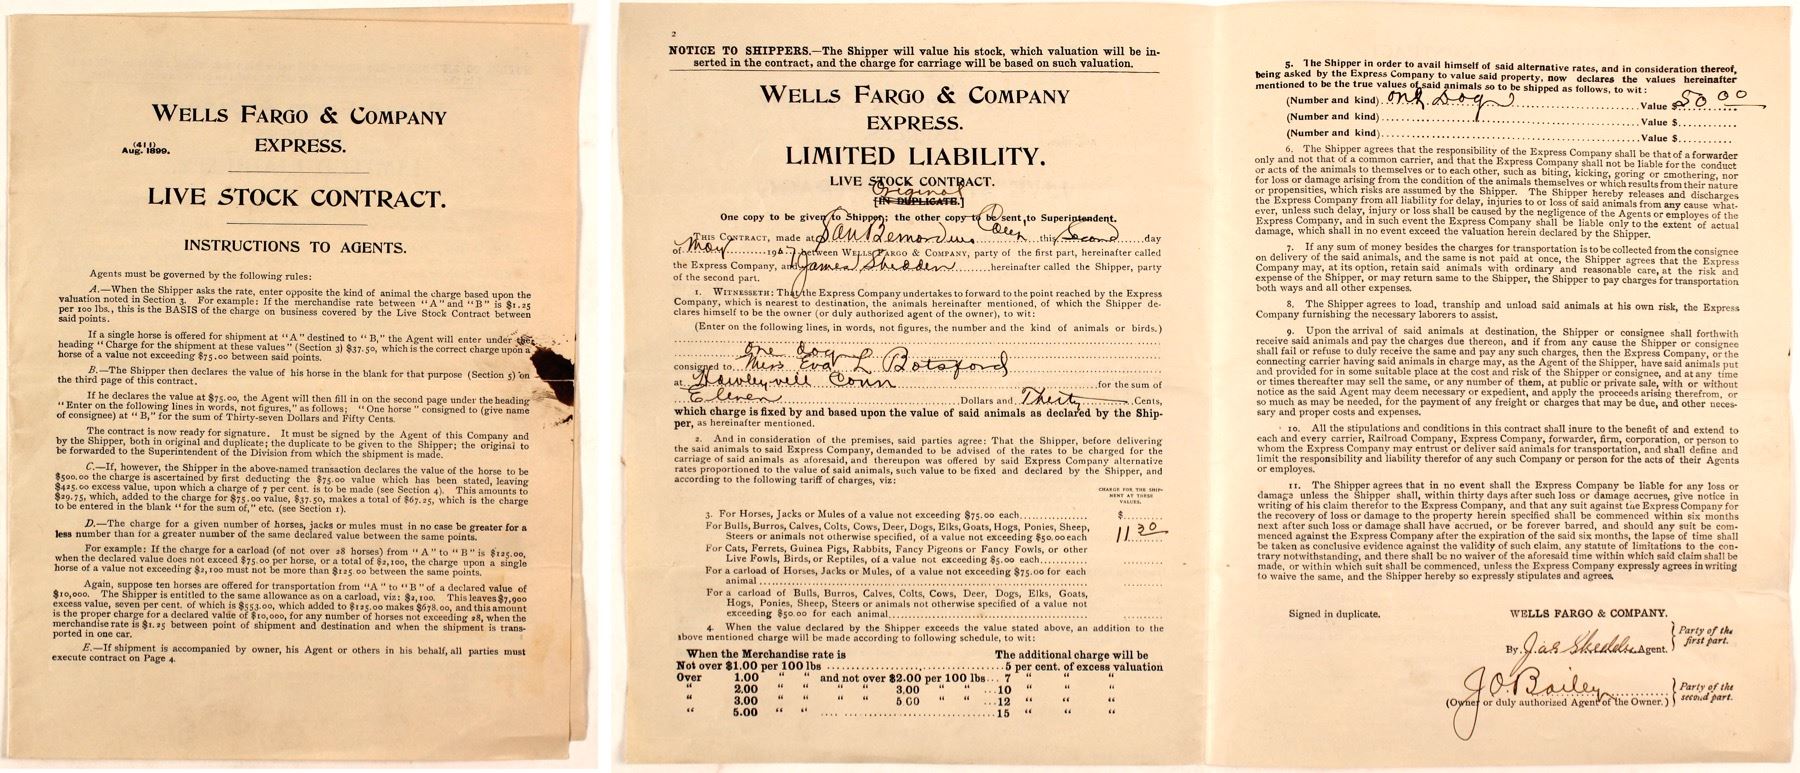 WELLS FARGO & COMPANY
EXPRESS.
(411)
Aug. 1899.
LIVE STOCK CONTRACT.
INSTRUCTIONS TO AGENTS.
Agents must be governed by the following rules:
A.—When the Shipper asks the rate, enter opposite the kind of animal the charge based upon the
valuation noted in Section 3. For example: If the merchandise rate between "A" and "B" is $1.25
per 100 lbs., this is the BASIS of the charge on business covered by the Live Stock Contract between
said points.
If a single horse is offered for shipment at "A" destined to "B," the Agent will enter under the
heading "Charge for the shipment at these values" (Section 3) $37.50, which is the correct charge upon a
horse of a value not exceeding $75.00 between said points.
B.—The Shipper then declares the value of his horse in the blank for that purpose (Section 5) on
the third page of this contract.
If he declares the value at $75.00, the Agent will then fill in on the second page under the heading
"Enter on the following lines in words, not figures," as follows; "One horse" consigned to (give name
of consignee) at "B," for the sum of Thirty-seven Dollars and Fifty Cents.
The contract is now ready for signature. It must be signed by the Agent of this Company and
by the Shipper, both in original and duplicate; the duplicate to be given to the Shipper; the original to
be forwarded to the Superintendent of the Division from which the shipment is made.
C.—If, however, the Shipper in the above-named transaction declares the value of the horse to be
$500.00 the charge is ascertained by first deducting the $75.00 value which has been stated, leaving
$425.00 excess value, upon which a charge of 7 per cent. is to be made (see Section 4). This amounts to
$29.75, which, added to the charge for $75.00 value, $37.50, makes a total of $67.25, which is the charge
to be entered in the blank "for the sum of," etc. (see Section 1).
D.—The charge for a given number of horses, jacks or mules must in no case be greater for a
less number than for a greater number of the same declared value between the same points.
For example: If the charge for a carload (of not over 28 horses) from "A" to "B" is $125.00,
when the declared value does not exceed $75.00 per horse, or a total of $2,100, the charge upon a single
horse of a value not exceeding $2,100 must not be more than $125.00 between the same points.
Again, suppose ten horses are offered for transportation from "A" to "B" of a declared value of
$10,000. The Shipper is entitled to the same allowance as on a carload, viz: $2,100. This leaves $7,900
excess value, seven per cent. of which is $553.00, which added to $125.00 makes $678.00, and this amount
is the proper charge for a declared value of $10,000, for any number of horses not exceeding 28, when the
merchandise rate is $1.25 between point of shipment and destination and when the shipment is trans-
ported in one car.
E.—If shipment is accompanied by owner, his Agent or others in his behalf, all parties must
execute contract on Page 4.
2
NOTICE TO SHIPPERS.—The Shipper will value his stock, which valuation will be in-
serted in the contract, and the charge for carriage will be based on such valuation.
WELLS FARGO & COMPANY
EXPRESS.
LIMITED LIABILITY.
LIVE STOCK CONTRACT.
Original
[IN DUPLICATE.]
One copy to be given to Shipper; the other copy to be sent to Superintendent.
THIS CONTRACT, made at San Bernardino this Second day
of May 1907, between WELLS FARGO & COMPANY, party of the first part, hereinafter called
the Express Company, and James Shedden hereinafter called the Shipper, party
of the second part.
1. WITNESSETH: That the Express Company undertakes to forward to the point reached by the Express
Company, which is nearest to destination, the animals hereinafter mentioned, of which the Shipper de-
clares himself to be the owner (or duly authorized agent of the owner), to wit:
(Enter on the following lines, in words, not figures, the number and the kind of animals or birds.)
One dog
consigned to Miss Eva L Botsford
at Hawleyvill Conn for the sum of
Eleven Dollars and Thirty Cents,
which charge is fixed by and based upon the value of said animals as declared by the Ship-
per, as hereinafter mentioned.
2. And in consideration of the premises, said parties agree: That the Shipper, before delivering
the said animals to said Express Company, demanded to be advised of the rates to be charged for the
carriage of said animals as aforesaid, and thereupon was offered by said Express Company alternative
rates proportioned to the value of said animals, such value to be fixed and declared by the Shipper, and
according to the following tariff of charges, viz:
CHARGE FOR THE SHIP-
MENT AT THESE
VALUES.
3. For Horses, Jacks or Mules of a value not exceeding $75.00 each $
For Bulls, Burros, Calves, Colts, Cows, Deer, Dogs, Elks, Goats, Hogs, Ponies, Sheep,
Steers or animals not otherwise specified, of a value not exceeding $50.00 each 11 30
For Cats, Ferrets, Guinea Pigs, Rabbits, Fancy Pigeons or Fancy Fowls, or other
Live Fowls, Birds, or Reptiles, of a value not exceeding $5.00 each
For a carload of Horses, Jacks or Mules, of a value not exceeding $75.00 for each
animal
For a carload of Bulls, Burros, Calves, Colts, Cows, Deer, Dogs, Elks, Goats,
Hogs, Ponies, Sheep, Steers or animals not otherwise specified of a value not
exceeding $50.00 for each animal
4. When the value declared by the Shipper exceeds the value stated above, an addition to the
above mentioned charge will be made according to following schedule, to wit:
When the Merchandise rate is The additional charge will be
Not over $1.00 per 100 lbs 5 per cent. of excess valuation
Over 1.00 " " and not over $2.00 per 100 lbs 7 " " "
" 2.00 " " " " 3.00 " " 10 " " "
" 3.00 " " " " 5 00 " " 12 " " "
" 5.00 " " 15 " " "
5. The Shipper in order to avail himself of said alternative rates, and in consideration thereof,
being asked by the Express Company to value said property, now declares the values hereinafter
mentioned to be the true values of said animals so to be shipped as follows, to wit:
(Number and kind) One Dog Value $50 00
(Number and kind) Value $
(Number and kind) Value $
6. The Shipper agrees that the responsibility of the Express Company shall be that of a forwarder
only and not that of a common carrier, and that the Express Company shall not be liable for the conduct
or acts of the animals to themselves or to each other, such as biting, kicking, goring or smothering, nor
for loss or damage arising from the condition of the animals themselves or which results from their nature
or propensities, which risks are assumed by the Shipper. The Shipper hereby releases and discharges
the Express Company from all liability for delay, injuries to or loss of said animals from any cause what-
ever, unless such delay, injury or loss shall be caused by the negligence of the Agents or employes of the
Express Company, and in such event the Express Company shall be liable only to the extent of actual
damage, which shall in no event exceed the valuation herein declared by the Shipper.
7. If any sum of money besides the charges for transportation is to be collected from the consignee
on delivery of the said animals, and the same is not paid at once, the Shipper agrees that the Express
Company may, at its option, retain said animals with ordinary and reasonable care, at the risk and
expense of the Shipper, or may return same to the Shipper, the Shipper to pay charges for transportation
both ways and all other expenses.
8. The Shipper agrees to load, tranship and unload said animals at his own risk, the Express
Company furnishing the necessary laborers to assist.
9. Upon the arrival of said animals at destination, the Shipper or consignee shall forthwith
receive said animals and pay the charges due thereon, and if from any cause the Shipper or consignee
shall fail or refuse to duly receive the same and pay any such charges, then the Express Company, or the
connecting carrier having said animals in charge may, as the Agent of the Shipper, have said animals put
and provided for in some suitable place at the cost and risk of the Shipper or consignee, and at any time
or times thereafter may sell the same, or any number of them, at public or private sale, with or without
notice as the said Agent may deem necessary or expedient, and apply the proceeds arising therefrom, or
so much as may be needed, for the payment of any freight or charges that may be due, and other neces-
sary and proper costs and expenses.
10. All the stipulations and conditions in this contract shall inure to the benefit of and extend to
each and every carrier, Railroad Company, Express Company, forwarder, firm, corporation, or person to
whom the Express Company may entrust or deliver said animals for transportation, and shall define and
limit the responsibility and liability therefor of any such Company or person for the acts of their Agents
or employes.
11. The Shipper agrees that in no event shall the Express Company be liable for any loss or
damage unless the Shipper shall, within thirty days after such loss or damage accrues, give notice in
writing of his claim therefor to the Express Company, and that any suit against the Express Company for
the recovery of loss or damage to the property herein specified shall be commenced within six months
next after such loss or damage shall have accrued, or be forever barred, and should any suit be com-
menced against the Express Company after the expiration of the said six months, the lapse of time shall
be taken as conclusive evidence against the validity of such claim, any statute of limitations to the con-
trary notwithstanding, and there shall be no waiver of the aforesaid time within which said claim shall be
made, or within which suit shall be commenced, unless the Express Company expressly agrees in writing
to waive the same, and the Shipper hereby so expressly stipulates and agrees.
Signed in duplicate. WELLS FARGO & COMPANY.
By Jas Shedden Agent. Party of the first part.
J O Bailey Party of the second part.
(Owner or duly authorized Agent of the Owner.)